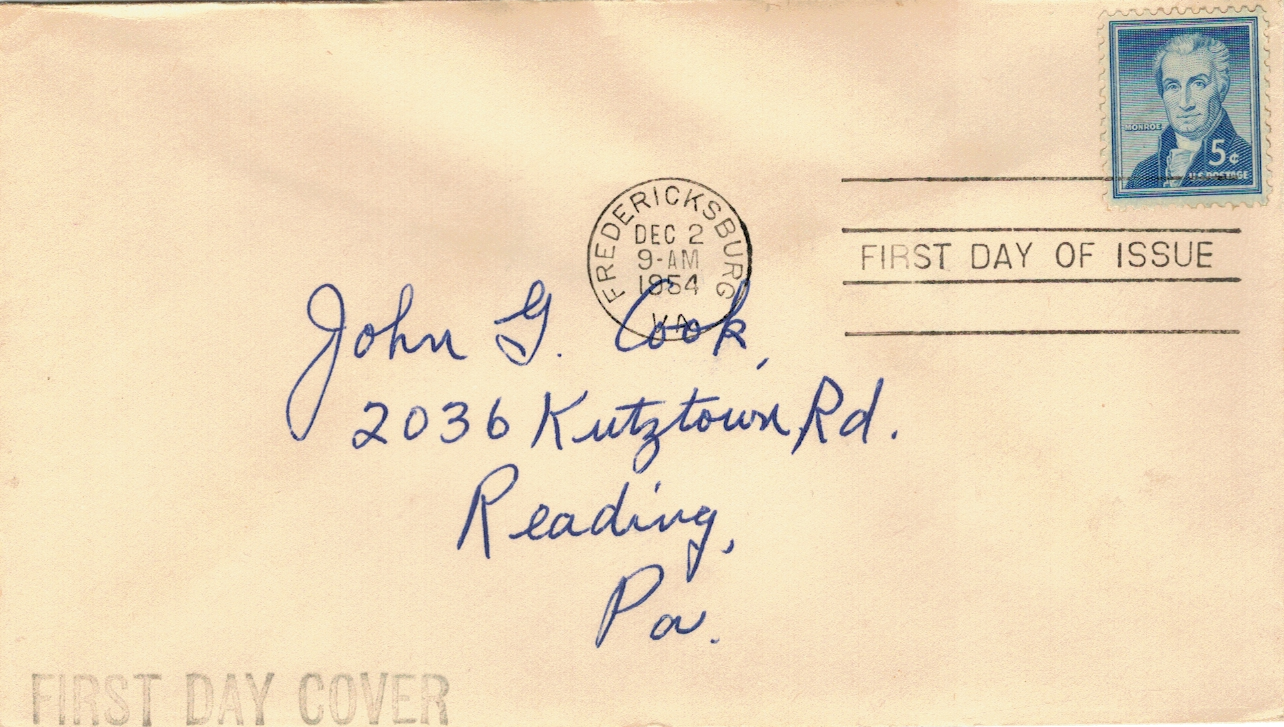 MONROE
5¢
U.S. POSTAGE
FREDERICKSBURG
DEC 2
9-AM
1954
VA
FIRST DAY OF ISSUE
John G. Cook,
2036 Kutztown Rd.
Reading,
Pa.
FIRST DAY COVER